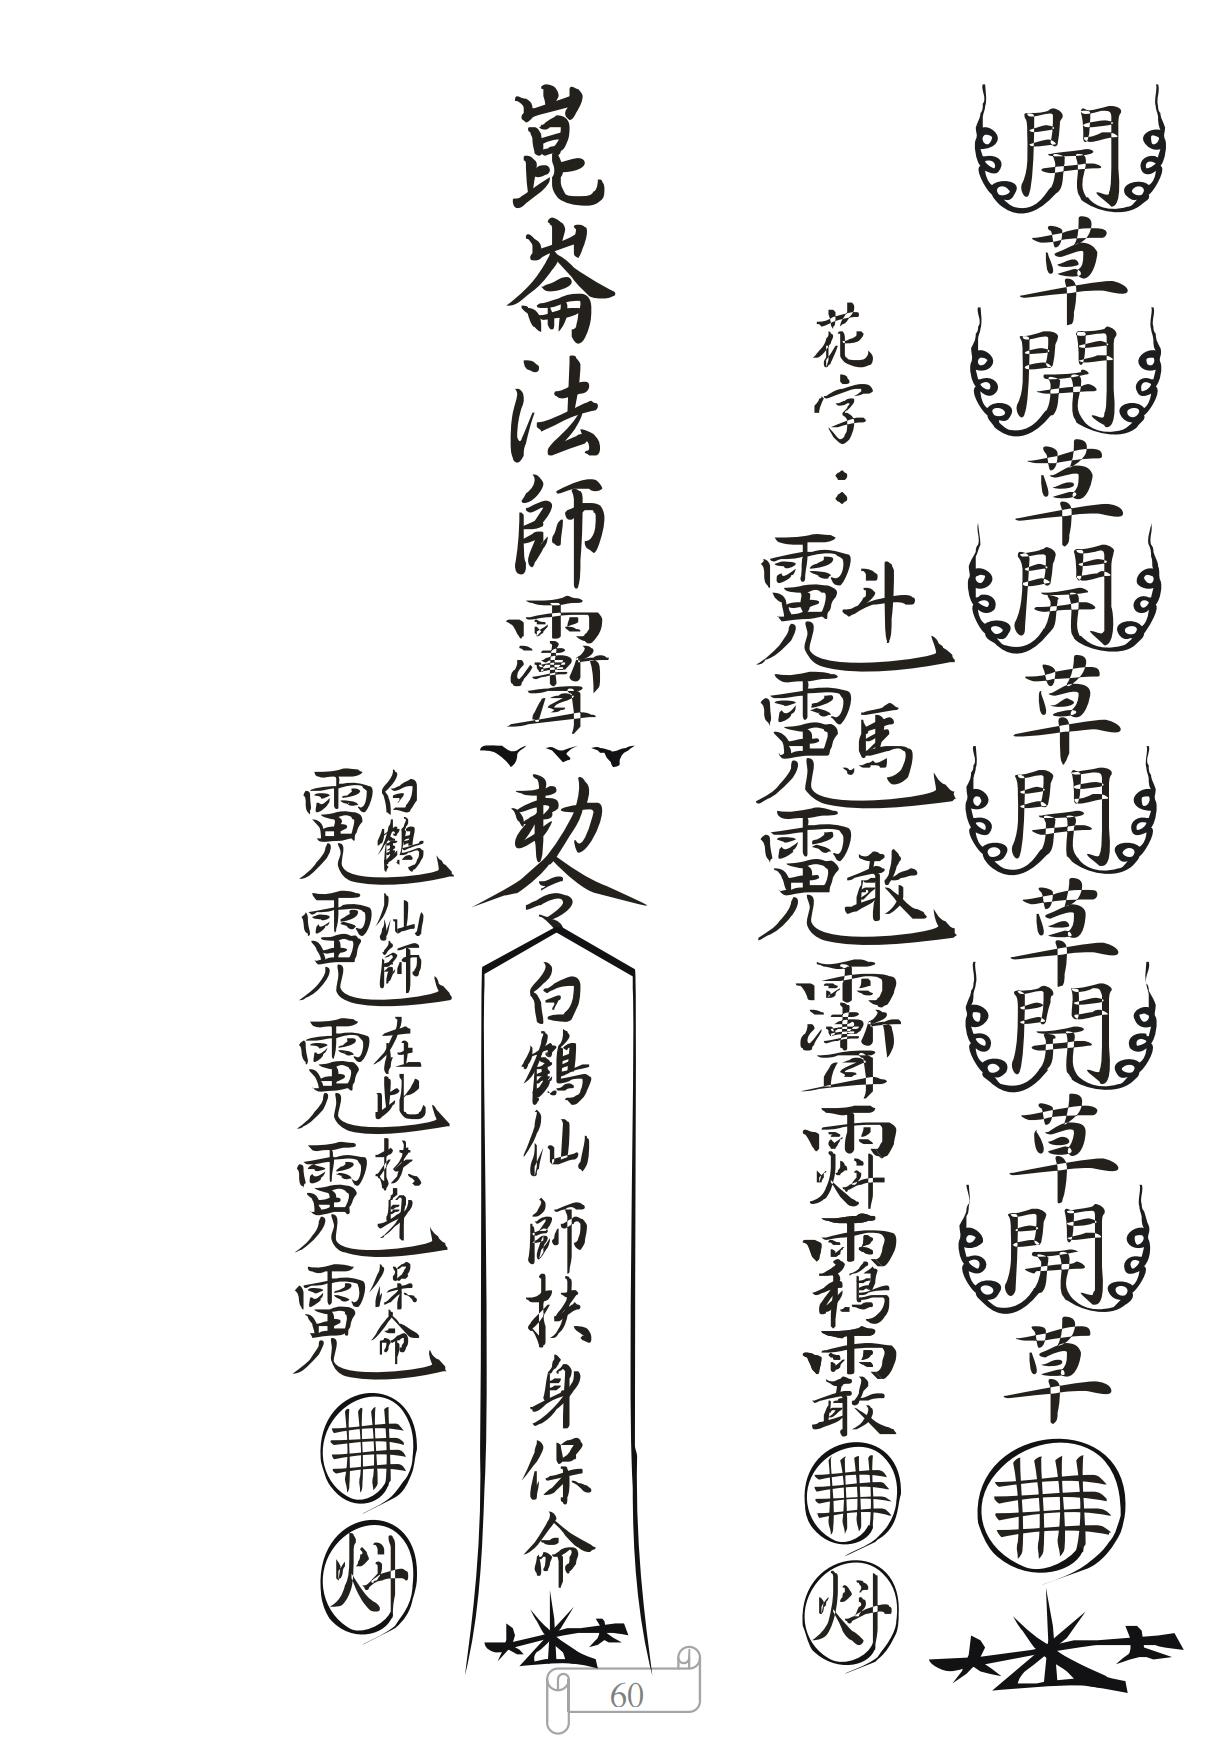 開草開草開草開草開草開草
花字：
斗馬敢
崑崙法師
勅令
白鶴仙師扶身保命
白鶴仙師在此扶身保命
60